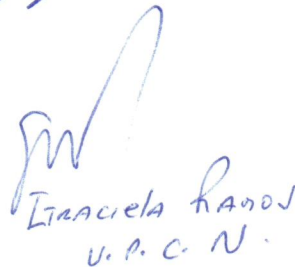 GRACIELA RAMOS
U.P.C.N.